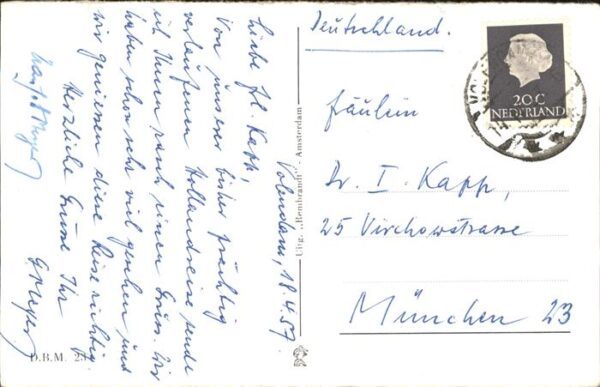 Volendam, 18.4.57
Liebe Frl. Kapp,
Von unserer bisher prächtig
verlaufenen Hollandreise sende
ich Ihnen rasch einen Gruss. Wir
haben schon sehr viel gesehen und
wir geniessen diese Reise richtig.
Herzliche Grüsse Ihr
Deutschland.
Fräulein
Dr. I. Kapp,
25 Virchowstrasse
München 23
20 C
NEDERLAND
Uitg. „Rembrandt" - Amsterdam
D.B.M. 23